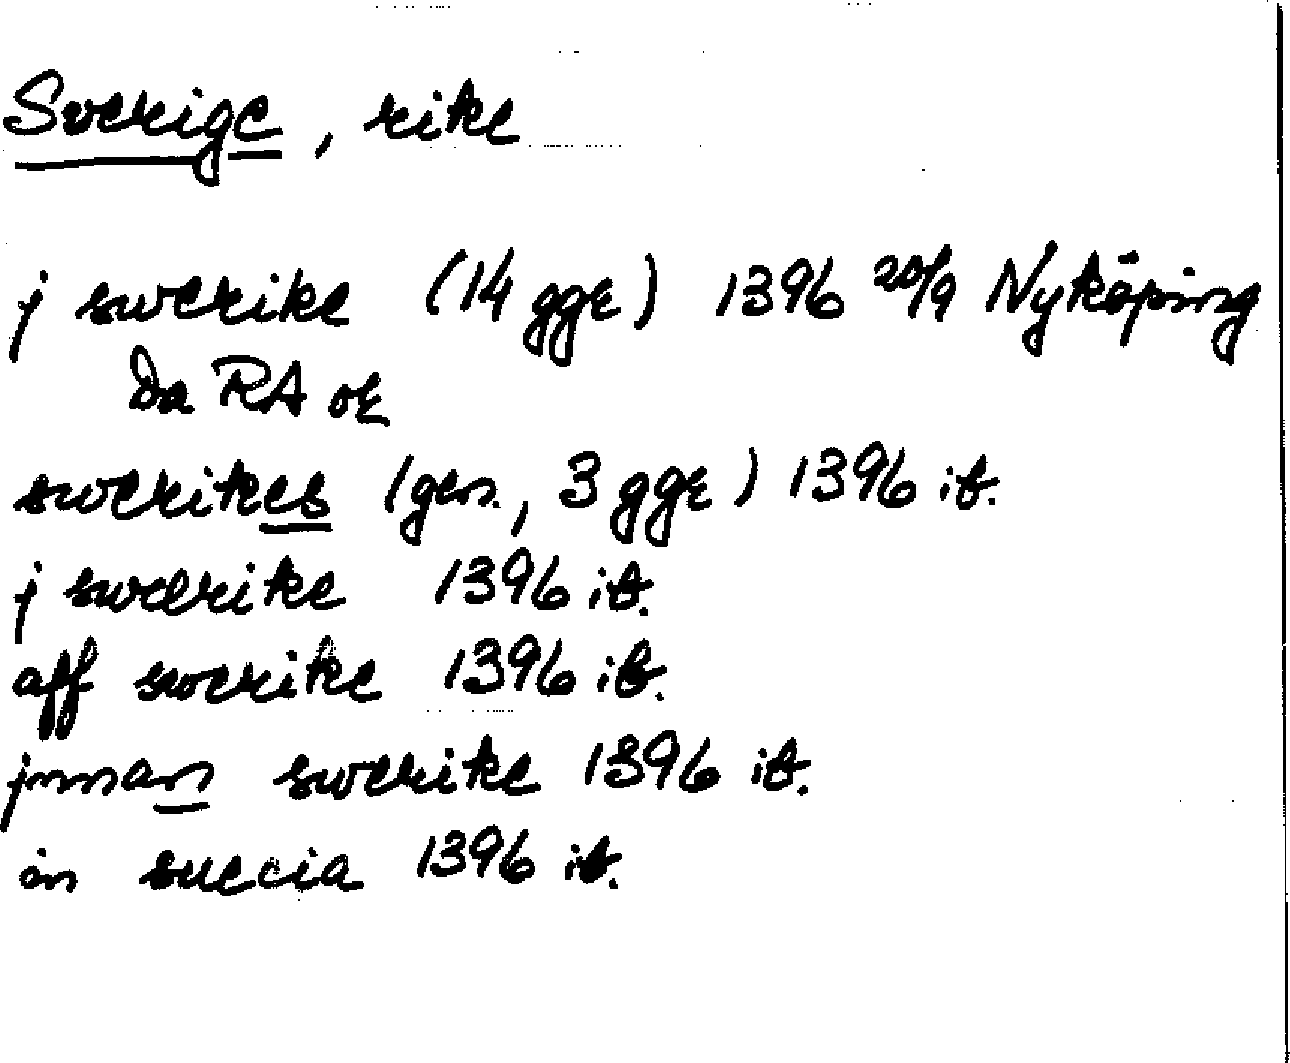 Sverige, rike
j swerike (14 gge) 1396 20/9 Nyköping
Da RA or
swerikes (gen., 3 gge) 1396 ib.
j swærike 1396 ib.
aff swerike 1396 ib.
jnnan swerike 1396 ib.
in suecia 1396 ib.